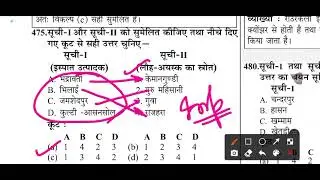 अतः विकल्प (c) सही सुमेलित है।
475.सूची-I और सूची-II को सुमेलित कीजिए तथा नीचे दिए
गए कूट से सही उत्तर चुनिए–
सूची-I सूची-II
(इस्पात उत्पादक) (लौह-अयस्क का स्रोत)
A. भद्रावती केमानगुण्डी
B. भिलाई 2. गुरु महिसानी
C. जमशेदपुर गुवा
D. कुल्टी-आसनसोल राजहरा
कूट :
A B C D A B C D
(a) 1 4 3 2 (b) 2 1 3 4
(c) 1 3 4 2 (d) 1 3 2 4
व्याख्या :
क्योंझर से होती है तथा
किया जाता है।
480.सूची-I तथा सूची
उत्तर का चयन
सूची-I
A. चन्दरपुर
B. हासन
C. खम्माम
D. खेतड़ी
A
1
3